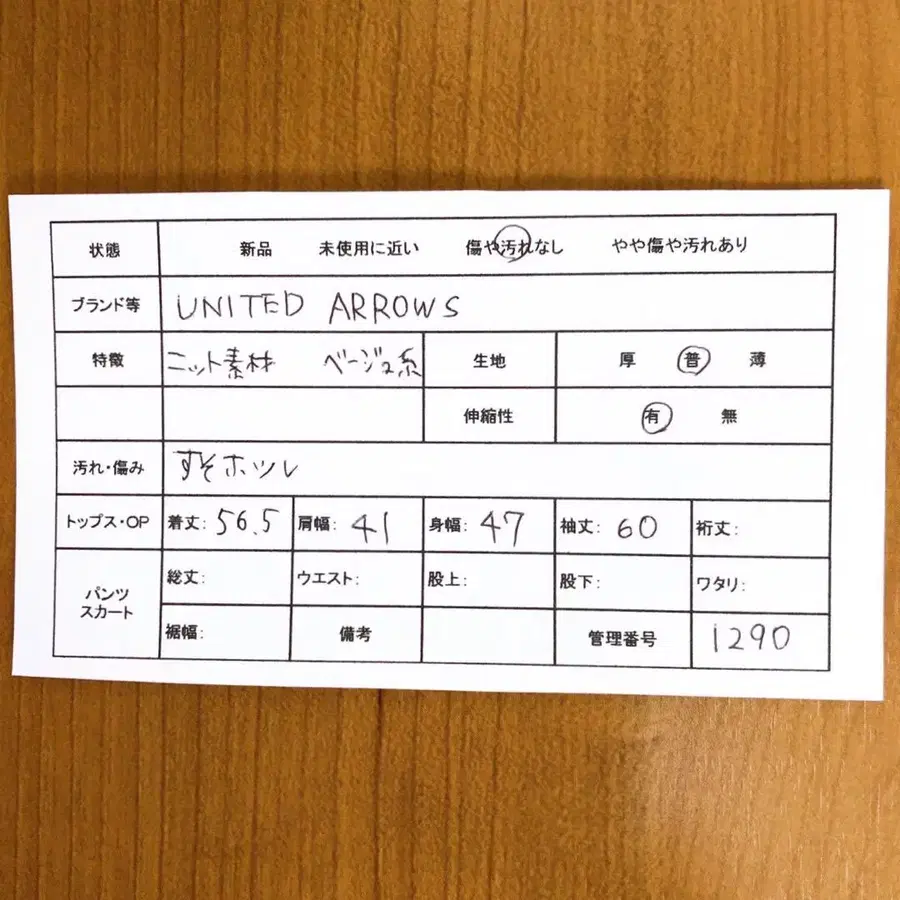 状態 新品 未使用に近い 傷や汚れなし やや傷や汚れあり
ブランド等 UNITED ARROWS
特徴 ニット素材 ベージュ系 生地 厚 普 薄
伸縮性 有 無
汚れ・傷み すそホツレ
トップス・OP 着丈: 56.5 肩幅: 41 身幅: 47 袖丈: 60 裄丈:
パンツ スカート 総丈: ウエスト: 股上: 股下: ワタリ:
裾幅: 備考 管理番号 1290